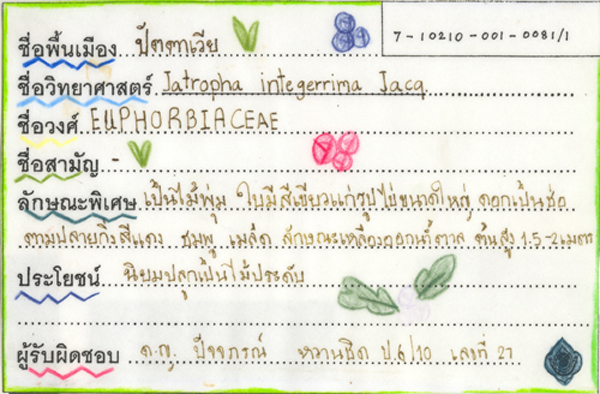 7-10210-001-0081/1
ชื่อพื้นเมือง ปัตตาเวีย
ชื่อวิทยาศาสตร์ Jatropha integerrima Jacq.
ชื่อวงศ์ EUPHORBIACEAE
ชื่อสามัญ -
ลักษณะพิเศษ เป็นไม้พุ่ม ใบมีสีเขียวแก่รูปไข่ขนาดใหญ่ ดอกเป็นช่อ
ตามปลายกิ่งสีแดง ชมพู เมล็ด ลักษณะเหลืองออกน้ำตาล ต้นสูง 1.5-2 เมตร
ประโยชน์ นิยมปลูกเป็นไม้ประดับ
ผู้รับผิดชอบ ด.ญ. ปัจจภรณ์ หวานชิด ป.6/10 เลขที่ 27